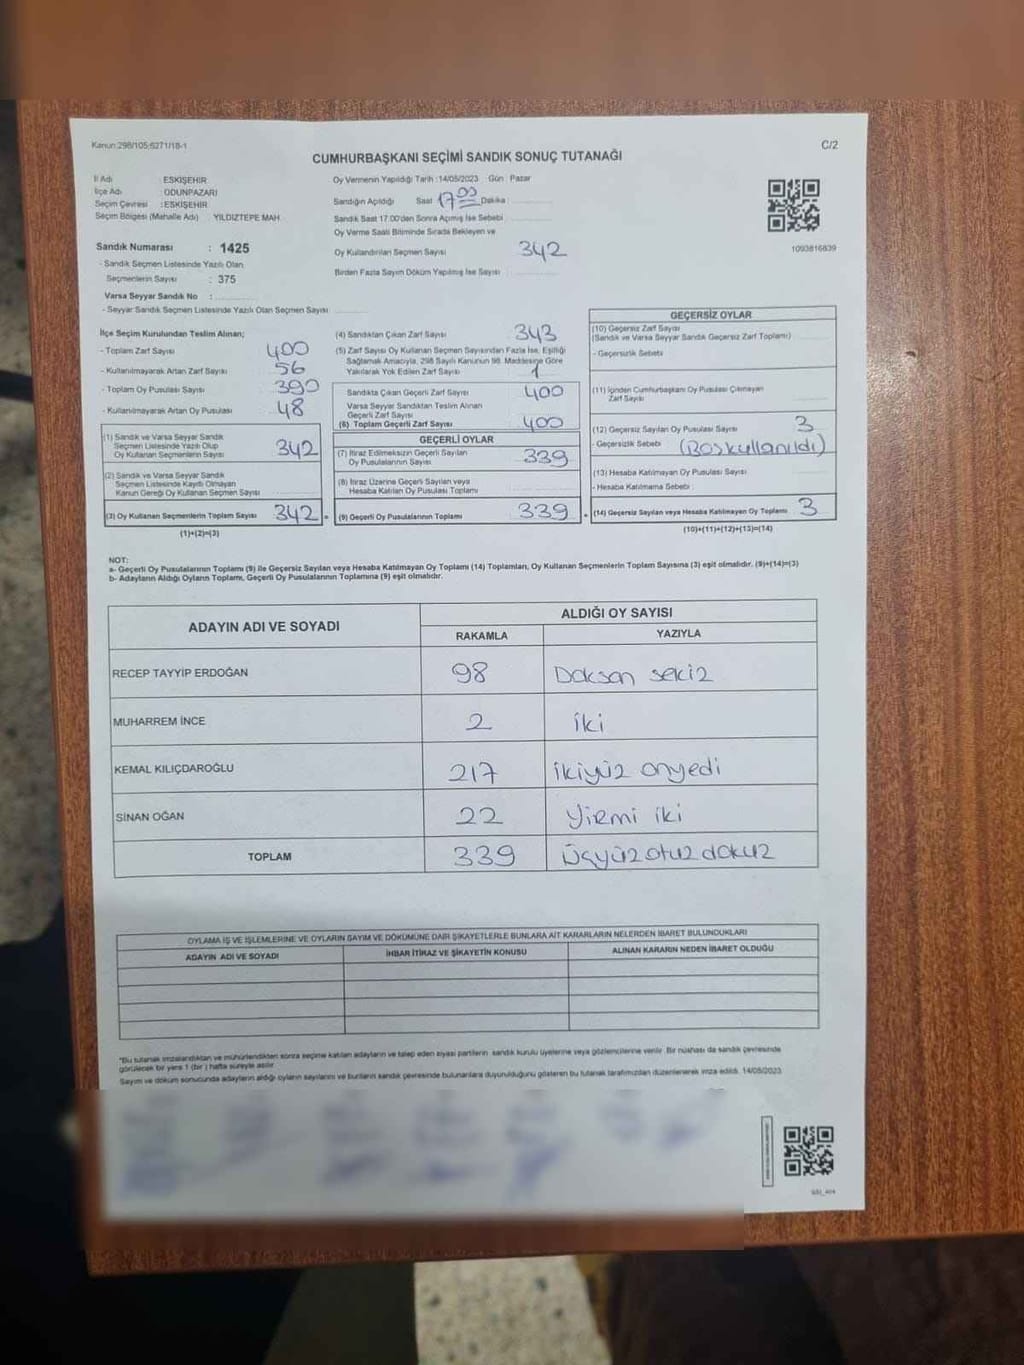 Kanun:298/105;6271/18-1
C/2
CUMHURBAŞKANI SEÇİMİ SANDIK SONUÇ TUTANAĞI
İl Adı : ESKİŞEHİR
İlçe Adı : ODUNPAZARI
Seçim Çevresi : ESKİŞEHİR
Seçim Bölgesi (Mahalle Adı) YILDIZTEPE MAH.
Sandık Numarası : 1425
- Sandık Seçmen Listesinde Yazılı Olan
Seçmenlerin Sayısı : 375
Varsa Seyyar Sandık No :
- Seyyar Sandık Seçmen Listesinde Yazılı Olan Seçmen Sayısı
Oy Vermenin Yapıldığı Tarih :14/05/2023 Gün : Pazar
Sandığın Açıldığı Saat 17 00 Dakika
Sandık Saat 17.00'den Sonra Açılmış İse Sebebi
Oy Verme Saati Bitiminde Sırada Bekleyen ve
Oy Kullandırılan Seçmen Sayısı 342
Birden Fazla Sayım Döküm Yapılmış İse Sayısı
1093816839
İlçe Seçim Kurulundan Teslim Alınan;
- Toplam Zarf Sayısı 400
- Kullanılmayarak Artan Zarf Sayısı 56
- Toplam Oy Pusulası Sayısı 390
- Kullanılmayarak Artan Oy Pusulası 48
(1) Sandık ve Varsa Seyyar Sandık
Seçmen Listesinde Yazılı Olup
Oy Kullanan Seçmenlerin Sayısı 342
(2) Sandık ve Varsa Seyyar Sandık
Seçmen Listesinde Kayıtlı Olmayan
Kanun Gereği Oy Kullanan Seçmen Sayısı
(3) Oy Kullanan Seçmenlerin Toplam Sayısı 342
(1)+(2)=(3)
(4) Sandıktan Çıkan Zarf Sayısı 343
(5) Zarf Sayısı Oy Kullanan Seçmen Sayısından Fazla İse, Eşitliği
Sağlamak Amacıyla, 298 Sayılı Kanunun 98. Maddesine Göre
Yakılarak Yok Edilen Zarf Sayısı 1
Sandıkta Çıkan Geçerli Zarf Sayısı 400
Varsa Seyyar Sandıktan Teslim Alınan
Geçerli Zarf Sayısı
(6) Toplam Geçerli Zarf Sayısı 400
GEÇERLİ OYLAR
(7) İtiraz Edilmeksizin Geçerli Sayılan
Oy Pusulalarının Sayısı 339
(8) İtiraz Üzerine Geçerli Sayılan veya
Hesaba Katılan Oy Pusulası Toplamı
(9) Geçerli Oy Pusulalarının Toplamı 339
GEÇERSİZ OYLAR
(10) Geçersiz Zarf Sayısı
(Sandık ve Varsa Seyyar Sandık Geçersiz Zarf Toplamı)
- Geçersizlik Sebebi
(11) İçinden Cumhurbaşkanı Oy Pusulası Çıkmayan
Zarf Sayısı
(12) Geçersiz Sayılan Oy Pusulası Sayısı 3
- Geçersizlik Sebebi (Boş kullanıldı)
(13) Hesaba Katılmayan Oy Pusulası Sayısı
- Hesaba Katılmama Sebebi :
(14) Geçersiz Sayılan veya Hesaba Katılmayan Oy Toplamı 3
(10)+(11)+(12)+(13)=(14)
NOT:
a- Geçerli Oy Pusulalarının Toplamı (9) ile Geçersiz Sayılan veya Hesaba Katılmayan Oy Toplamı (14) Toplamları, Oy Kullanan Seçmenlerin Toplam Sayısına (3) eşit olmalıdır. (9)+(14)=(3)
b- Adayların Aldığı Oyların Toplamı, Geçerli Oy Pusulalarının Toplamına (9) eşit olmalıdır.
ADAYIN ADI VE SOYADI
ALDIĞI OY SAYISI
RAKAMLA YAZIYLA
RECEP TAYYİP ERDOĞAN 98 Doksan sekiz
MUHARREM İNCE 2 iki
KEMAL KILIÇDAROĞLU 217 ikiyüz onyedi
SİNAN OĞAN 22 Yirmi iki
TOPLAM 339 Üçyüz otuz dokuz
OYLAMA İŞ VE İŞLEMLERİNE VE OYLARIN SAYIM VE DÖKÜMÜNE DAİR ŞİKAYETLERLE BUNLARA AİT KARARLARIN NELERDEN İBARET BULUNDUKLARI
ADAYIN ADI VE SOYADI İHBAR İTİRAZ VE ŞİKAYETİN KONUSU ALINAN KARARIN NEDEN İBARET OLDUĞU
*Bu tutanak imzalandıktan ve mühürlendikten sonra seçime katılan adayların ve talep eden siyasi partilerin sandık kurulu üyelerine veya gözlemcilerine verilir. Bir nüshası da sandık çevresinde
görülecek bir yere 1 (bir) hafta süreyle asılır.
Sayım ve döküm sonucunda adayların aldığı oyların sayılarını ve bunların sandık çevresinde bulunanlara duyurulduğunu gösteren bu tutanak tarafımızdan düzenlenerek imza edildi. 14/05/2023